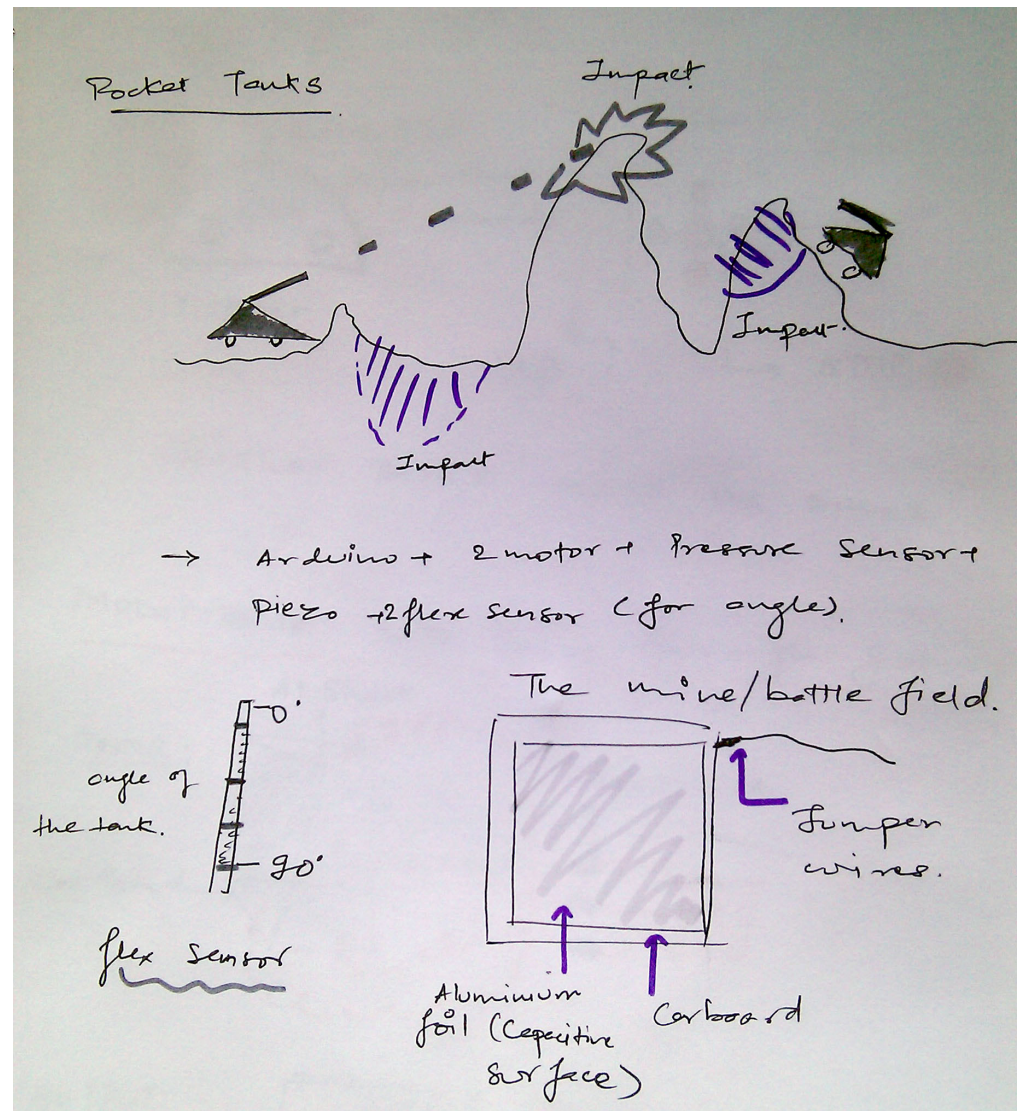 Pocket Tanks
Impact
Impact.
Impact
→ Arduino + 2 motor + Pressure Sensor +
Piezo + 2 flex sensor (for angle).
The mine/battle field.
0°
angle of
the tank.
90°
flex sensor
Jumper
wires.
Aluminium
foil (Capacitive
surface)
Carboard